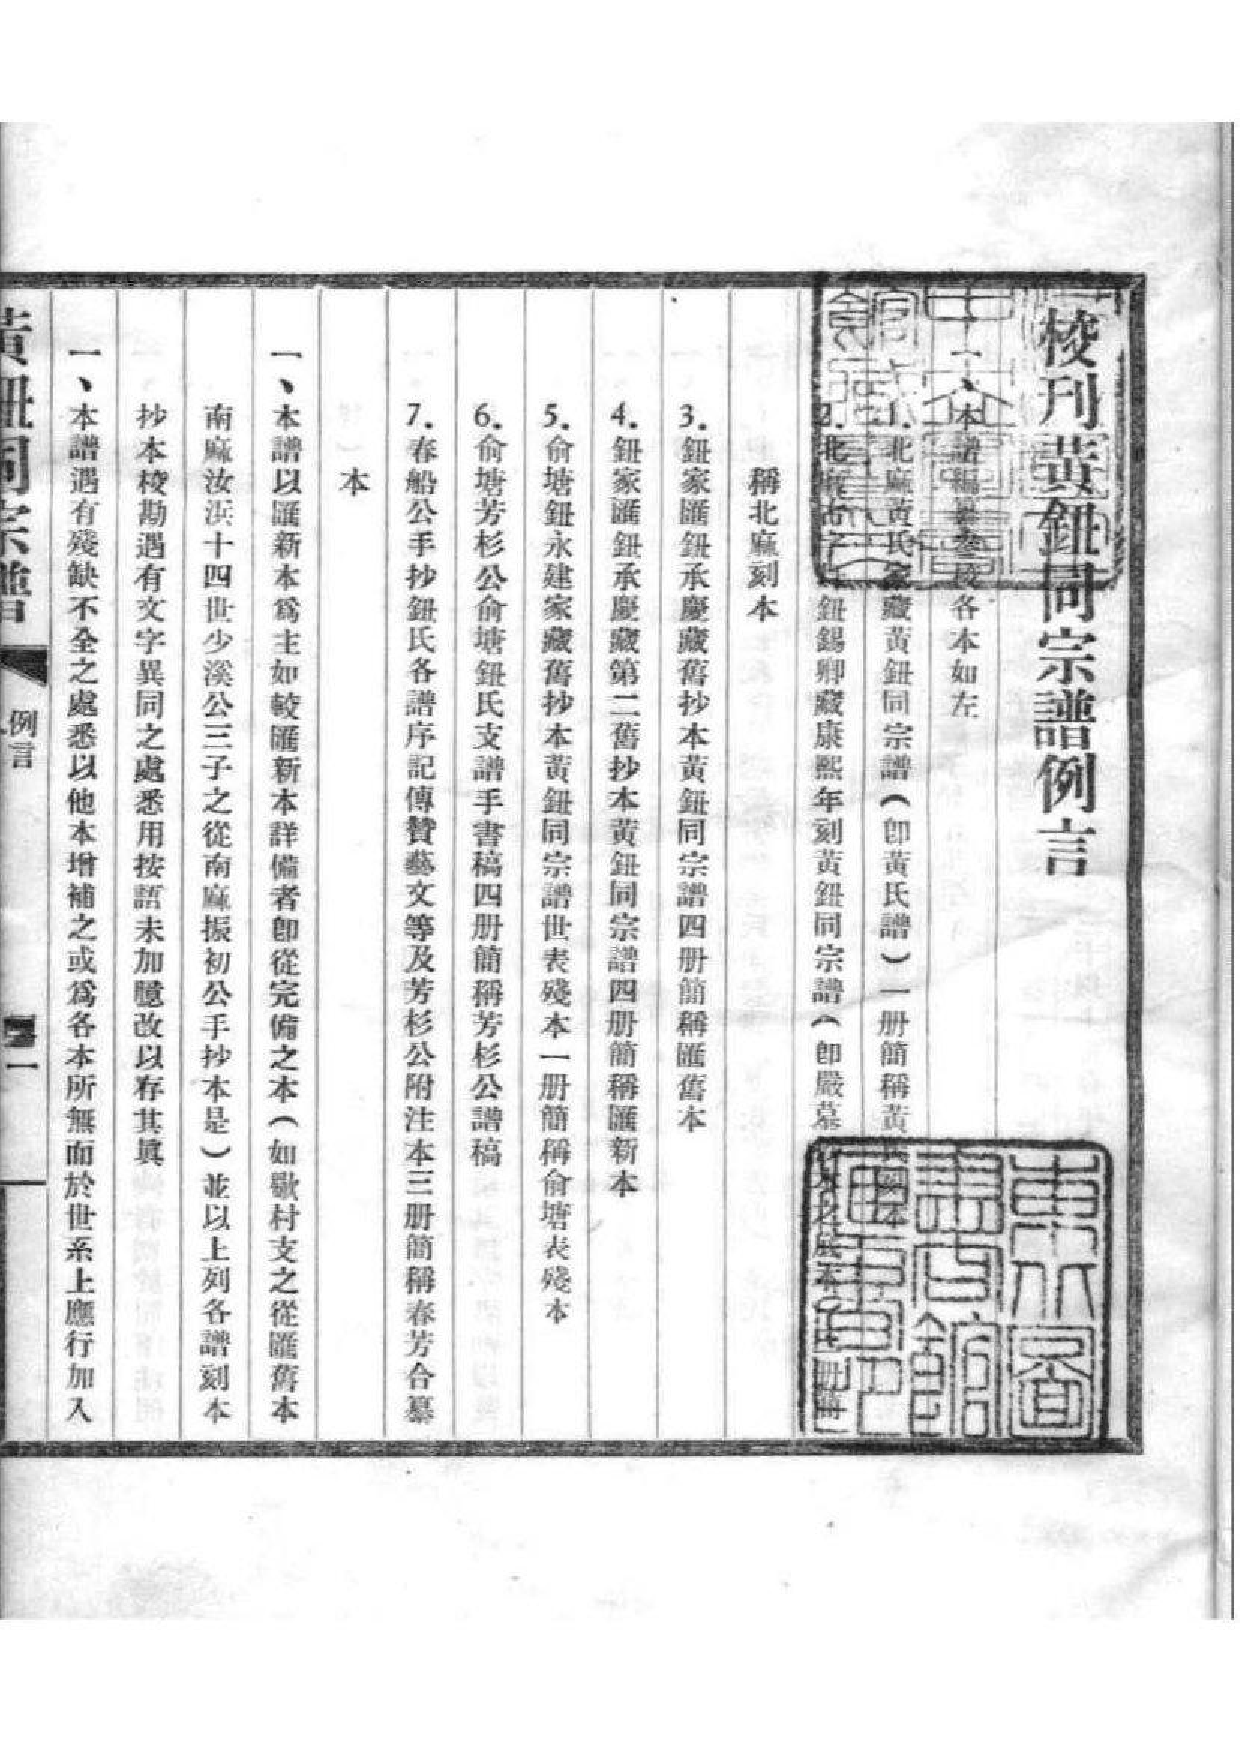 校刊黃鈕同宗譜例言
一、本譜編纂參校各本如左
1.北麻黃氏家藏黃鈕同宗譜(卽黃氏譜)一册簡稱黃氏本
2.北麻 鈕錫卿藏康熙年刻黃鈕同宗譜(卽嚴墓 之底本) 册簡
稱北麻刻本
3.鈕家匯鈕承慶藏舊抄本黃鈕同宗譜四册簡稱匯舊本
4.鈕家匯鈕承慶藏第二舊抄本黃鈕同宗譜四册簡稱匯新本
5.俞塘鈕永建家藏舊抄本黃鈕同宗譜世表殘本一册簡稱俞塘表殘本
6.俞塘芳杉公俞塘鈕氏支譜手書稿四册簡稱芳杉公譜稿
7.春船公手抄鈕氏各譜序記傳贊藝文等及芳杉公附注本三册簡稱春芳合纂
本
一、本譜以匯新本爲主如較匯新本詳備者卽從完備之本(如歇村支之從匯舊本
南麻汝浜十四世少溪公三子之從南麻振初公手抄本是)並以上列各譜刻本
抄本校勘遇有文字異同之處悉用按語未加臆改以存其眞
一、本譜遇有殘缺不全之處悉以他本增補之或爲各本所無而於世系上應行加入
黃鈕同宗譜
例言
一
東北圖
書館